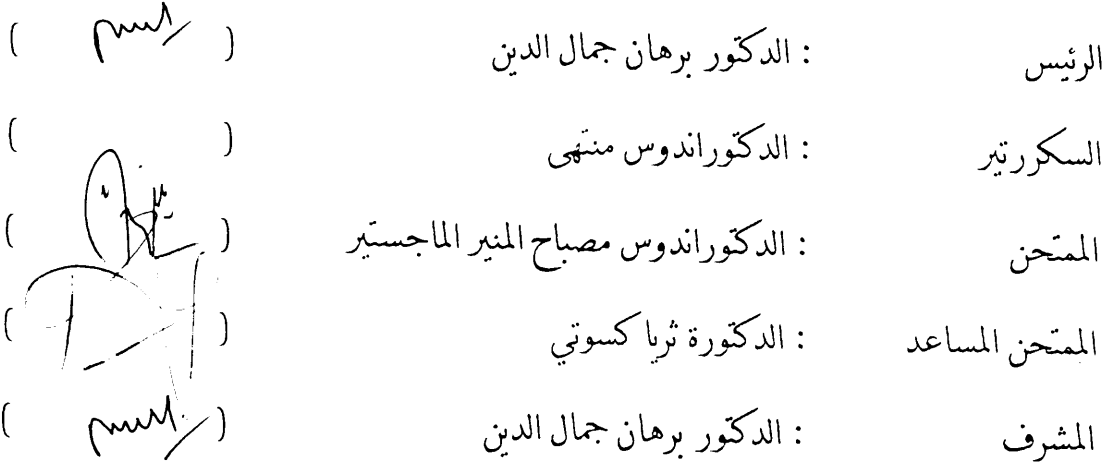 الرئيس : الدكتور برهان جمال الدين ( )
السكررتير : الدكتوراندوس منتهى ( )
الممتحن : الدكتوراندوس مصباح المنير الماجستير ( )
الممتحن المساعد : الدكتورة ثريا كسوتي ( )
المشرف : الدكتور برهان جمال الدين ( )